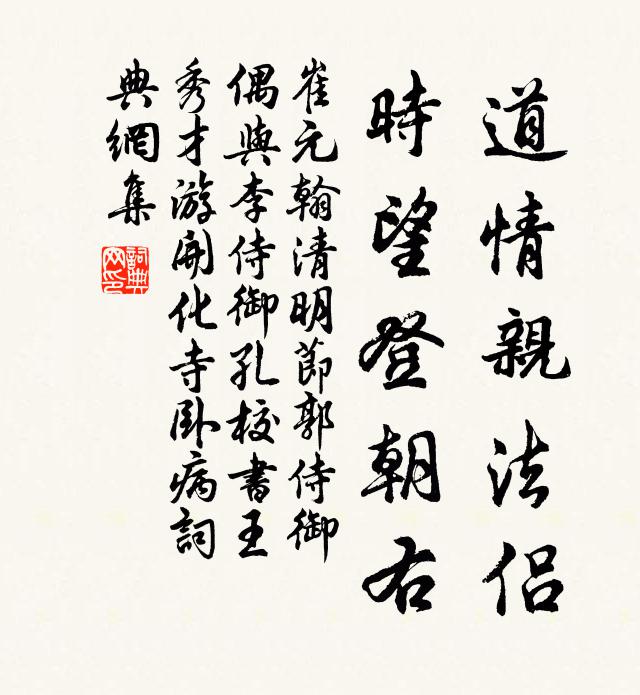 道情親法侶
時望登朝右
崔元翰清明節郭侍御
偶與李侍御孔校書王
秀才游開化寺卧病詞
典網集
詞典網印